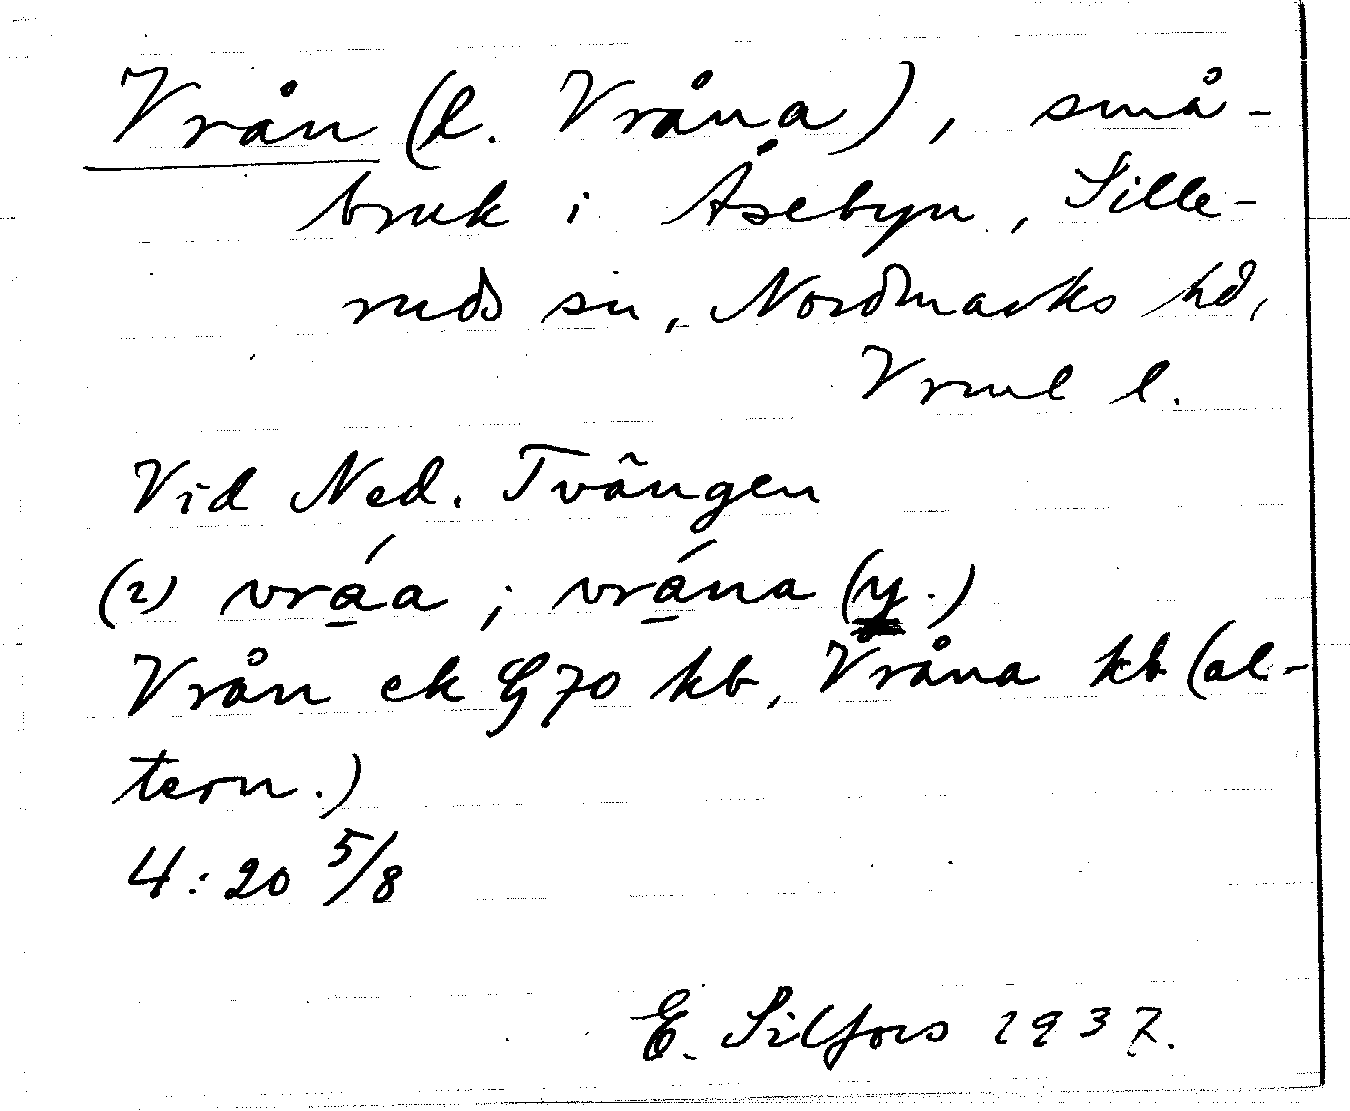 Vrån (l. Vråna), små-
bruk i Åsebyn, Sille-
ruds sn, Nordmarks hd,
Vrml l.
Vid Ned. Tvängen
(2) vráa ; vrána (y.)
Vrån ek G 70 kb, Vråna kb (al-
tern.)
4:20 5/8
E. Silfors 1937.